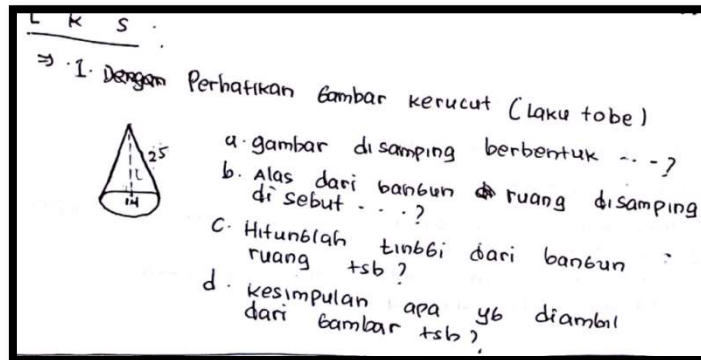 L K S .
⇒ 1. Dengan Perhatikan Gambar kerucut (Laku tobe)
25
t
14
a. gambar disamping berbentuk ...?
b. Alas dari bangun ruang disamping
di sebut ...?
C. Hitunglah tinggi dari bangun
ruang tsb?
d. kesimpulan apa yg diambil
dari Gambar tsb?